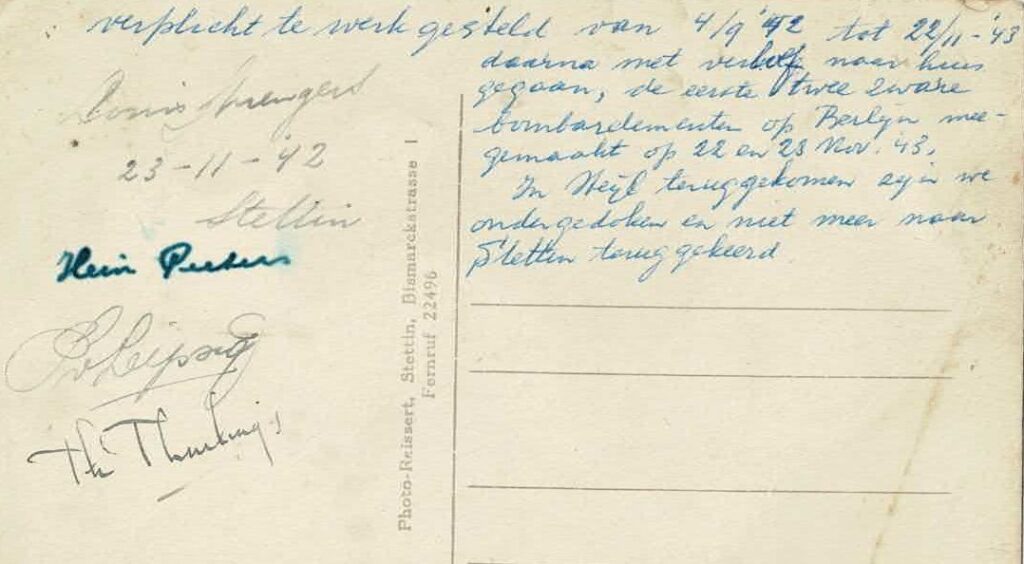 verplicht te werk gesteld van 4/9 '42 tot 22/11-'43
daarna met verlof naar huis
gegaan, de eerste twee zware
bombardementen op Berlijn mee-
gemaakt op 22 en 23 Nov. '43.
In Steijl teruggekomen zijn we
ondergedoken en niet meer naar
Stettin teruggekeerd
Louis
23-11-42
Stettin
Hein Peeters
v Leipsig
Th
Photo-Reissert, Stettin, Bismarckstrasse 1
Fernruf 22496